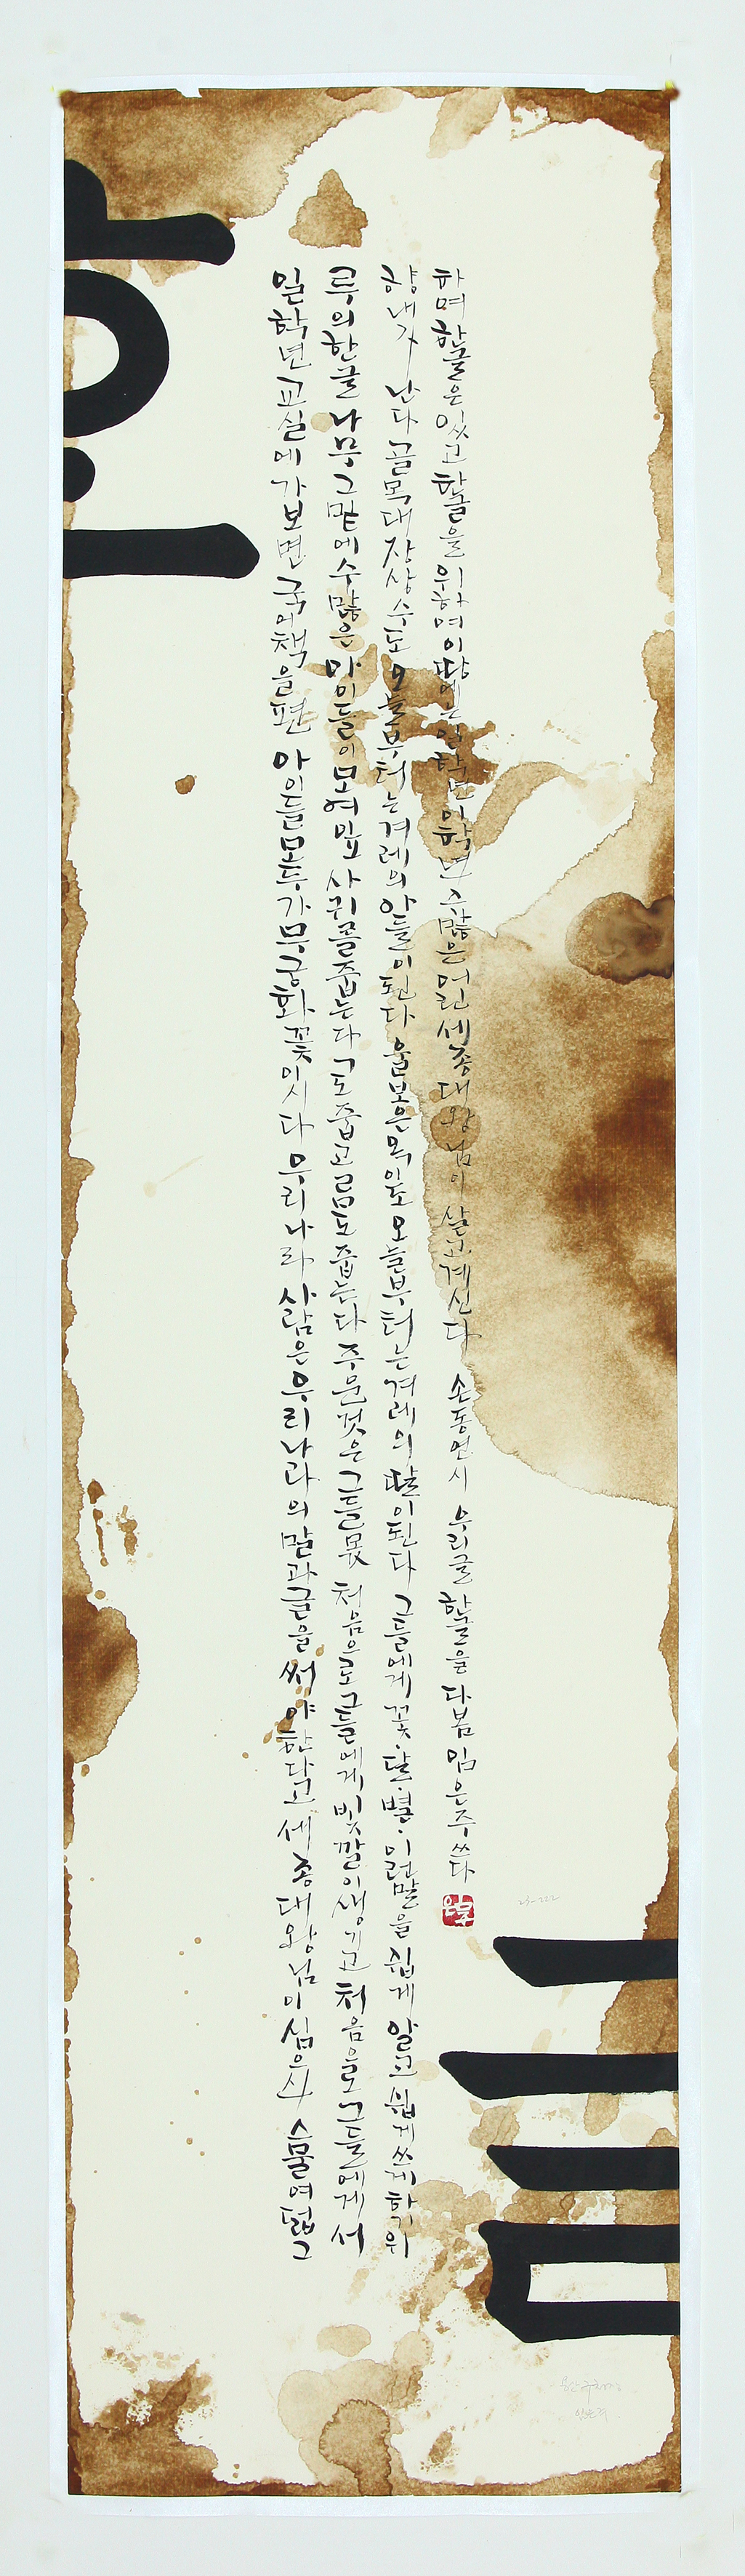 일학년 교실에 가보면 국어책을 편 아이들 모두가 무궁화 꽃이시다 우리나라 사람은 우리나라의 말과 글을 써야한다고 세종대왕님이 심으신 스물여덟 그
루의 한글 나무 그 밑에 수많은 아이들이 모여 잎사귀를 줍는다 ㄱ도 줍고 ㄹㅁ도 줍는다 주운것은 그들 몫 처음으로 그들에게 빛깔이 생기고 처음으로 그들에게서
향내가 난다 골목대장 상수도 오늘부터는 겨레의 아들이 된다 울보 은옥이도 오늘부터는 겨레의 딸이 된다 그들에게 꽃·달·별·이런 말을 쉽게 알고 쉽게 쓰게 하기 위
하며 한글은 있고 한글을 위하며 이 땅에는 일학년 이학년 수많은 어린 세종대왕님이 살고 계신다 손동연 시 우리글 한글을 다봄 임은주 쓰다